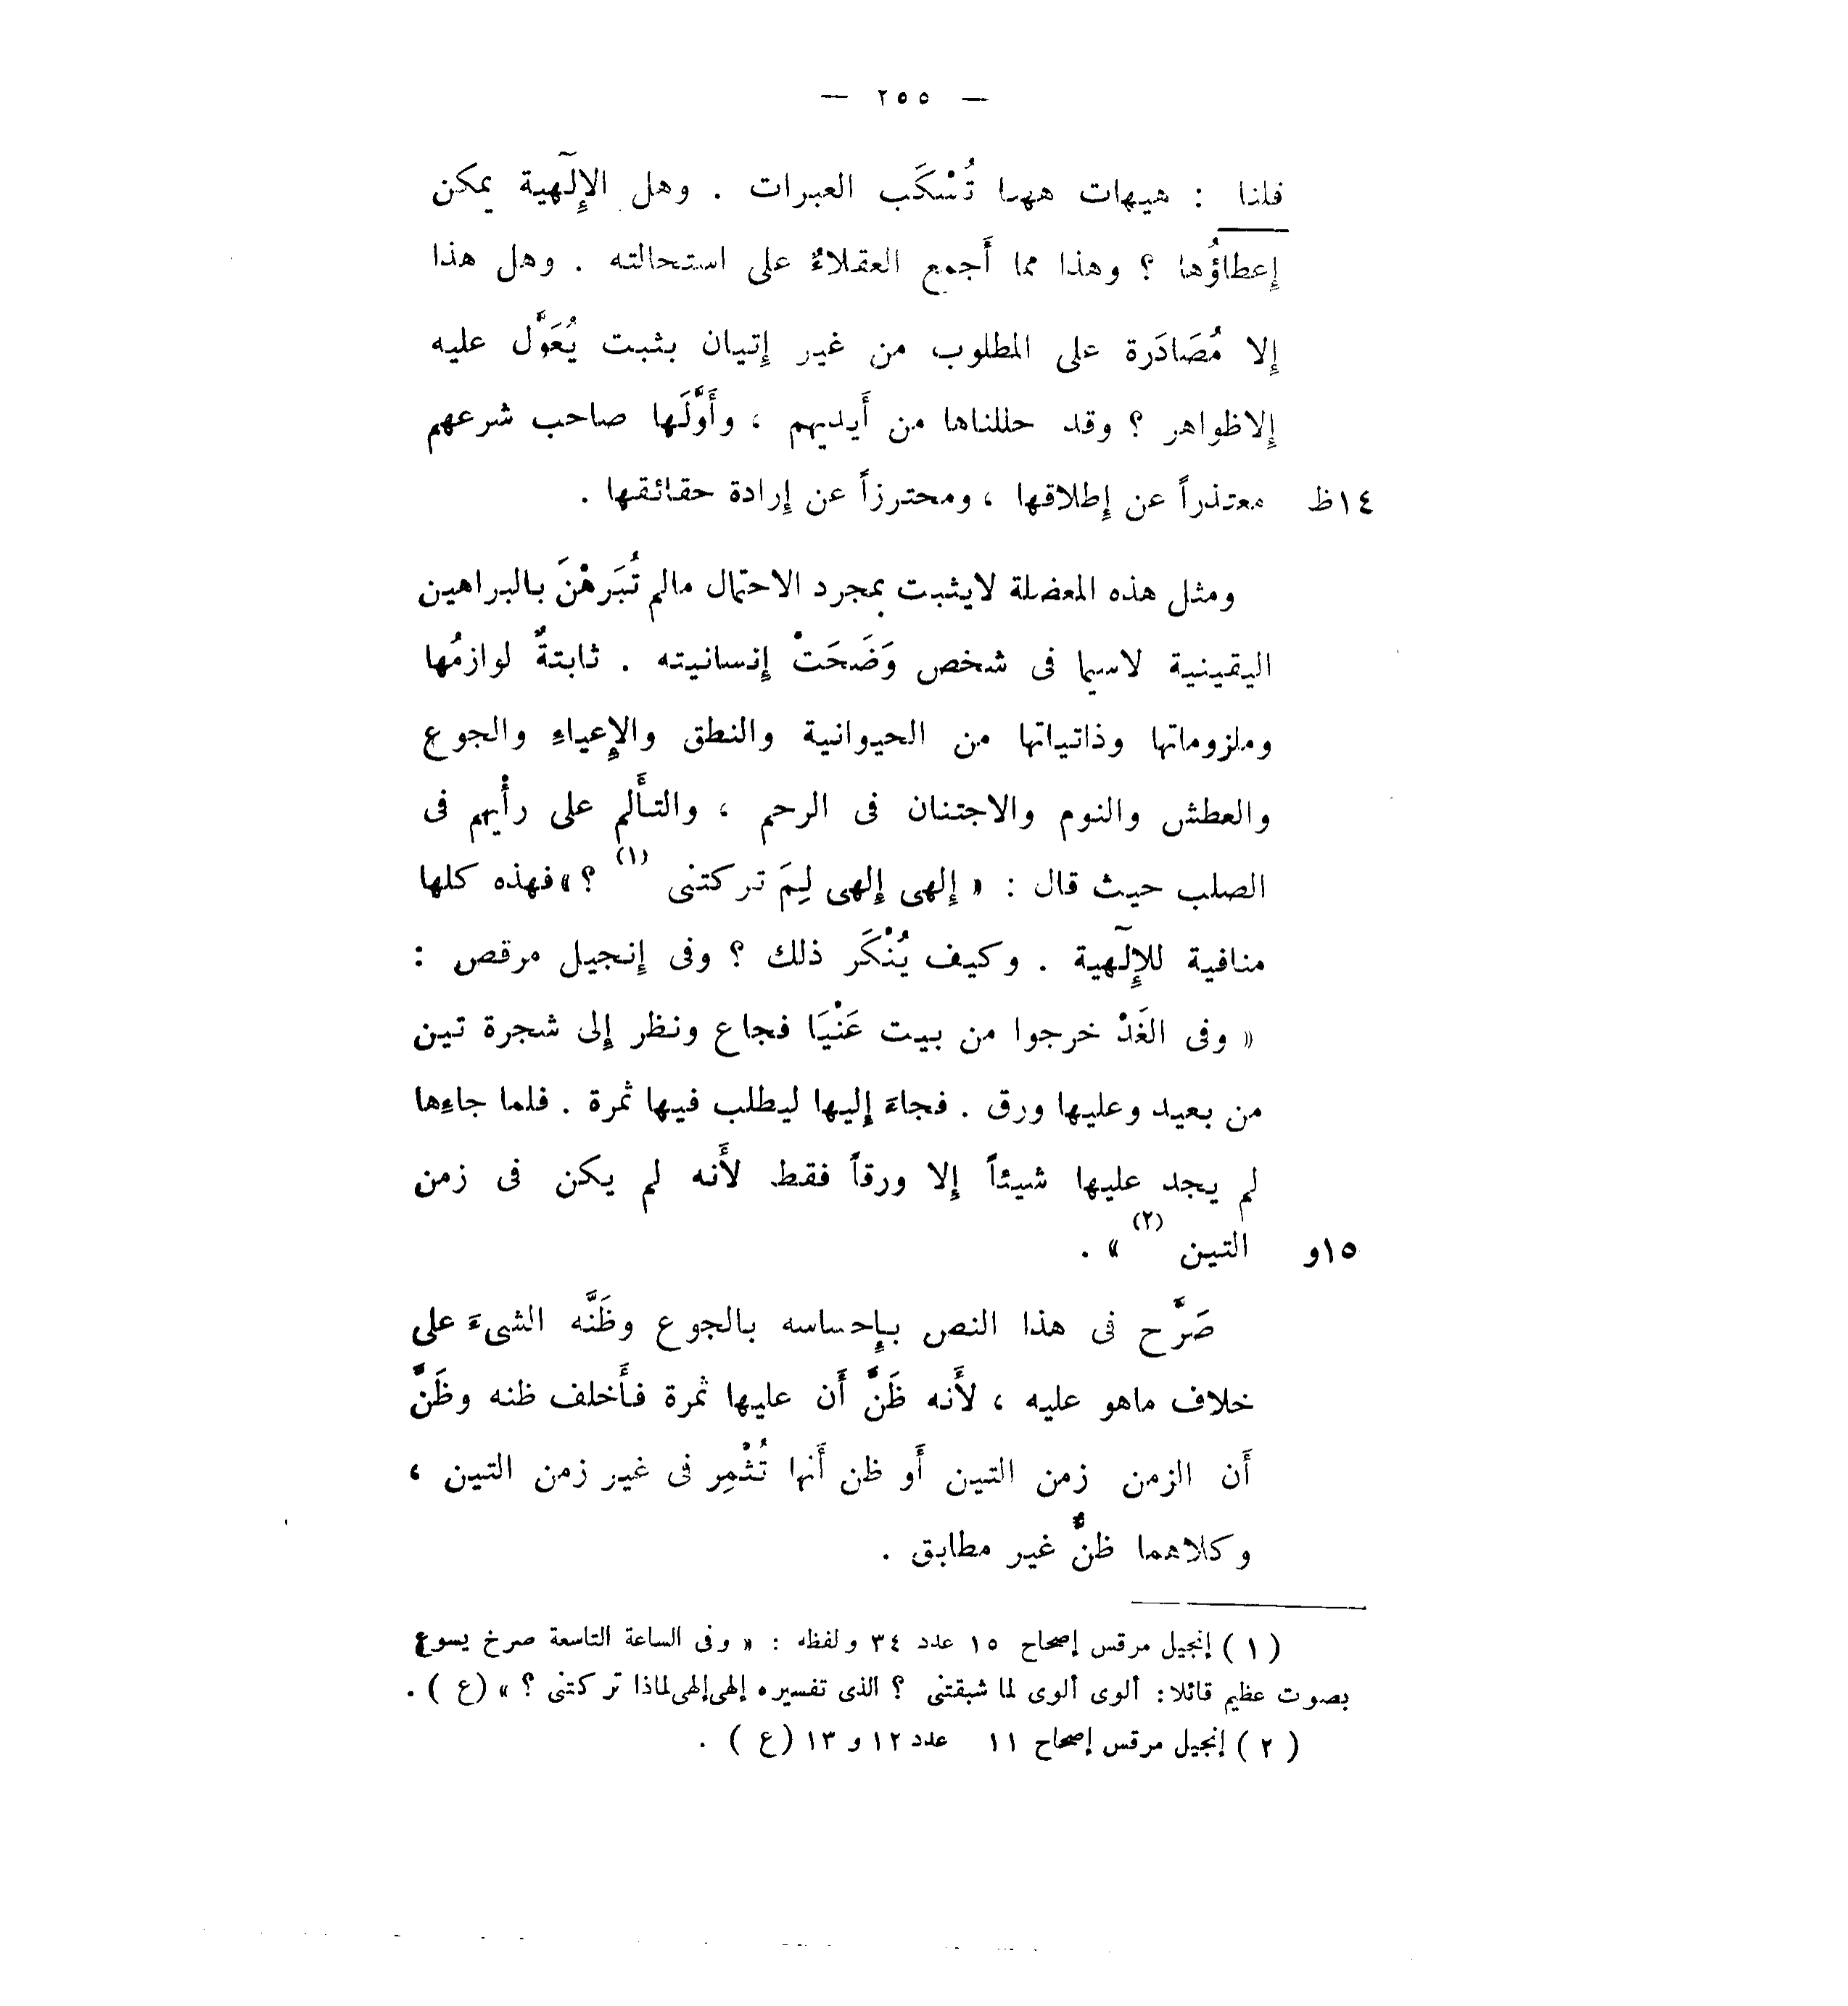 — ٢٥٥ —
قلنا : هيهات ههنا تُسْكَب العبرات . وهل الإِلَٓهية يمكن
إِعطاؤُها ؟ وهذا مما أَجمع العقلاءُ على استحالته . وهل هذا
إِلا مُصَادَرة على المطلوب من غير إِتيان بثبت يُعَوَّل عليه
إِلاظواهر ؟ وقد حللناها من أَيديهم ، وأَوَّلَها صاحب شرعهم
١٤ظ معتذراً عن إِطلاقها ، ومحترزاً عن إِرادة حقائقها .
ومثل هذه المعضلة لايثبت بمجرد الاحتمال مالم تُبَرهْنَ بالبراهين
اليقينية لاسيما فى شخص وَضَحَتْ إِنسانيته . ثابتةٌ لوازمُها
وملزوماتها وذاتياتها من الحيوانية والنطق والإِعياءِ والجوع
والعطش والنوم والاجتنان فى الرحم ، والتأَلم على رأْيهم فى
الصلب حيث قال : « إِلهى إِلهى لِمَ تركتنى (١) ؟ » فهذه كلها
منافية للإِلَٓهية . وكيف يُنْكَر ذلك ؟ وفى إِنجيل مرقص :
« وفى الغَدْ خرجوا من بيت عَنْيَا فجاع ونظر إِلى شجرة تين
من بعيد وعليها ورق . فجاءَ إِليها ليطلب فيها ثمرة . فلما جاءها
لم يجد عليها شيئاً إِلا ورقاً فقط لأَنه لم يكن فى زمن
١٥و التين (٢) » .
صَرَّح فى هذا النص بإِحساسه بالجوع وظَنَّه الشىءَ على
خلاف ماهو عليه ، لأَنه ظَنَّ أَن عليها ثمرة فأَخلف ظنه وظَنَّ
أَن الزمن زمن التين أَو ظن أَنها تُثْمِر فى غير زمن التين ،
وكلاهما ظنٌّ غير مطابق .
( ١ ) إنجيل مرقس إصحاح ١٥ عدد ٣٤ ولفظه : « وفى الساعة التاسعة صرخ يسوع
بصوت عظيم قائلا : ألوى ألوى لما شبقتنى ؟ الذى تفسيره إلهى إلهى لماذا تركتنى ؟ » ( ع ) .
( ٢ ) إنجيل مرقس إصحاح ١١ عدد ١٢ و ١٣ ( ع ) .